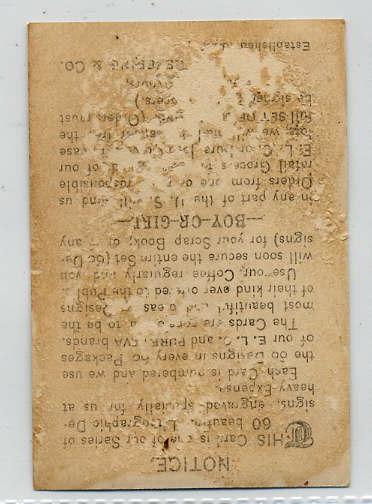 NOTICE.
THIS Card is one of our Series of
60 beautiful Lithographic De-
signs, engraved specially for us at
heavy Expense.
Each Card is numbered and we use
the 60 Designs in every 60 Packages
of our E. L. C. and PURE JAVA brands.
The Cards are to be the
most beautiful and Designs
of their kind ever offered to the Public
Use our Coffee regularly and you
will soon secure the entire Set (60 De-
signs) for your Scrap Book, or any
—BOY-OR-GIRL—
in any part of the U. S. will send us
Orders from one or responsible
retail Grocers of our
E. L. C. or Pure Java
we will the
full SET OF (Orders must
be signed Grocers)
& CO.
Established